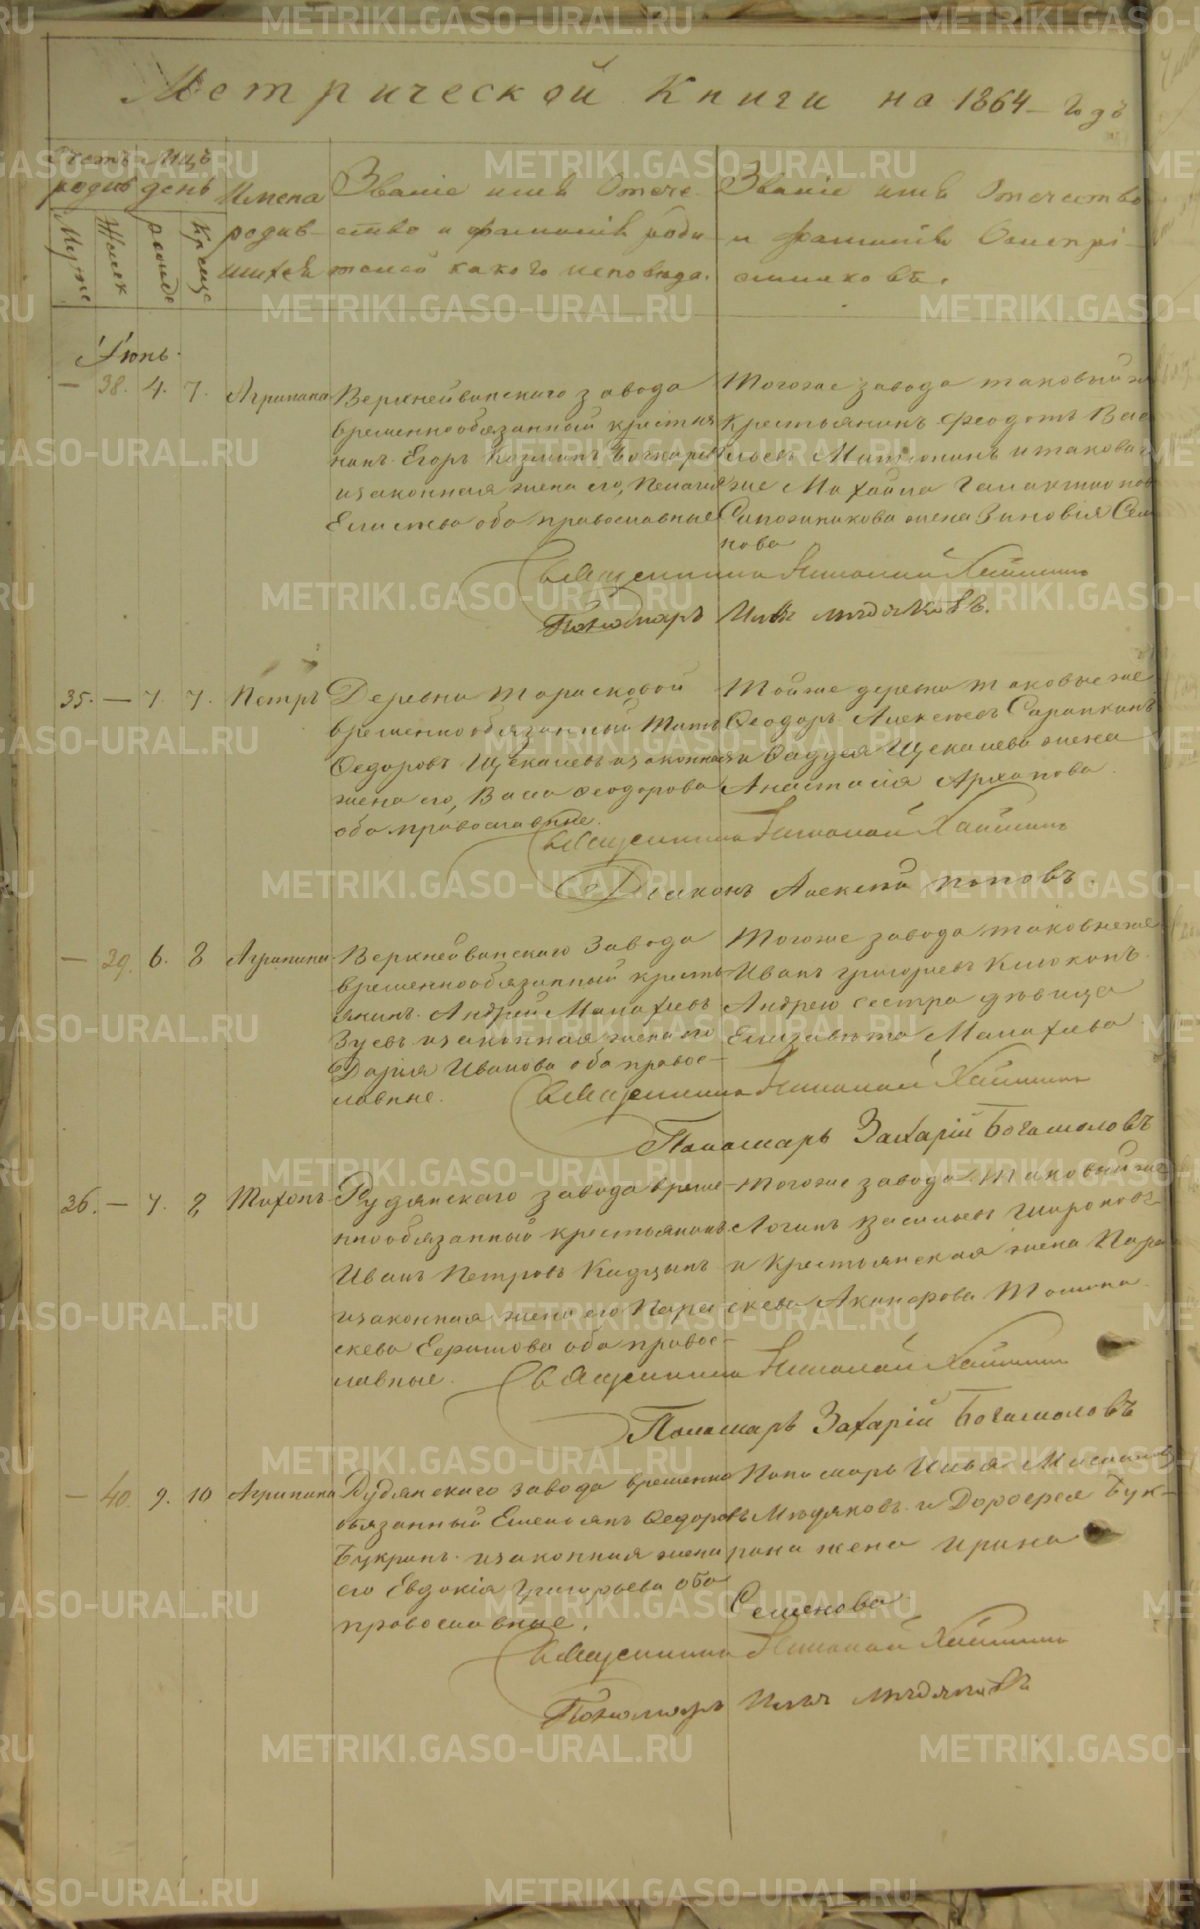 Метрической Книги на 1864 Годъ
Счетъ родив
Мцъ день
Имена родив шихся
Званіе имя Отече ство и фамилія роди телей какого исповѣда.
Званіе имя Отчество и фамилія Воспрі емниковъ.
Муже
Женск
рожде
Креще
Іюнь.
— 38. 4. 7. Агрипина
Верхнейвинскаго завода
временнообязанный крестья
нинъ Егоръ Козминъ Бочкаревъ
изаконная жена его, Пелагия
Елисѣева оба православные
Тогоже завода таковый же
Крестьянинъ Феодотъ Васи
льевъ Матюнинъ итаковаго
же Михаила Галактионова
Сапожникова жена Зиновія Семе
нова
Священникъ Николай Хаймин
Пономарь Илья Мюдяковъ.
35. — 7. 7. Петръ
Деревни Тарасковой
временнообязанный Титъ
Федоровъ Щекалевъ изаконная
жена его, Васа Феодорова
оба православные.
Тойже деревни таковые же
Феодоръ Алексеевъ Сарапкинъ
и Фаддея Щекалева жена
Анастасія Архипова.
Священникъ Николай Хаймин
Діаконъ Алексѣй Поповъ.
— 39. 6. 8 Агрипина
Верхнейвинскаго Завода
временнообязанный кресть
янинъ Андрей Малафеевъ
Зуевъ изаконная жена его
Дарія Иванова оба правос
лавные.
Тогоже завода таковыеже
Иванъ Григорьевъ Клюкинъ.
Андрею сестра дѣвица
Елизавѣта Малафеева
Священникъ Николай Хаймин
Пономарь Захарій Богомоловъ
36. — 7. 8, Тихонъ
Рудянскаго завода време
ннообязанный крестьянинъ
Иванъ Петровъ Кадцынъ
изаконная жена его Парас
кева Ефимова оба правос
лавные.
Тогоже завода Таковый же
Логинъ Васильевъ Широковъ
и Крестьянская жена Пара
скева Никифорова Томина
Священникъ Николай Хаймин
Пономарь Захарій Богомоловъ
— 40. 9. 10 Агрипина
Рудянскаго завода временно
обязанный Емельянъ Федоровъ
Букринъ изаконная жена
его Евдокія Григорьева оба
православные.
Пономарь Илья
Мюдяковъ и Дорофея Бук
рина жена Ирина
Семенова
Священникъ Николай Хаймин
Пономарь Илья Мюдяковъ
METRIKI.GASO-URAL.RU